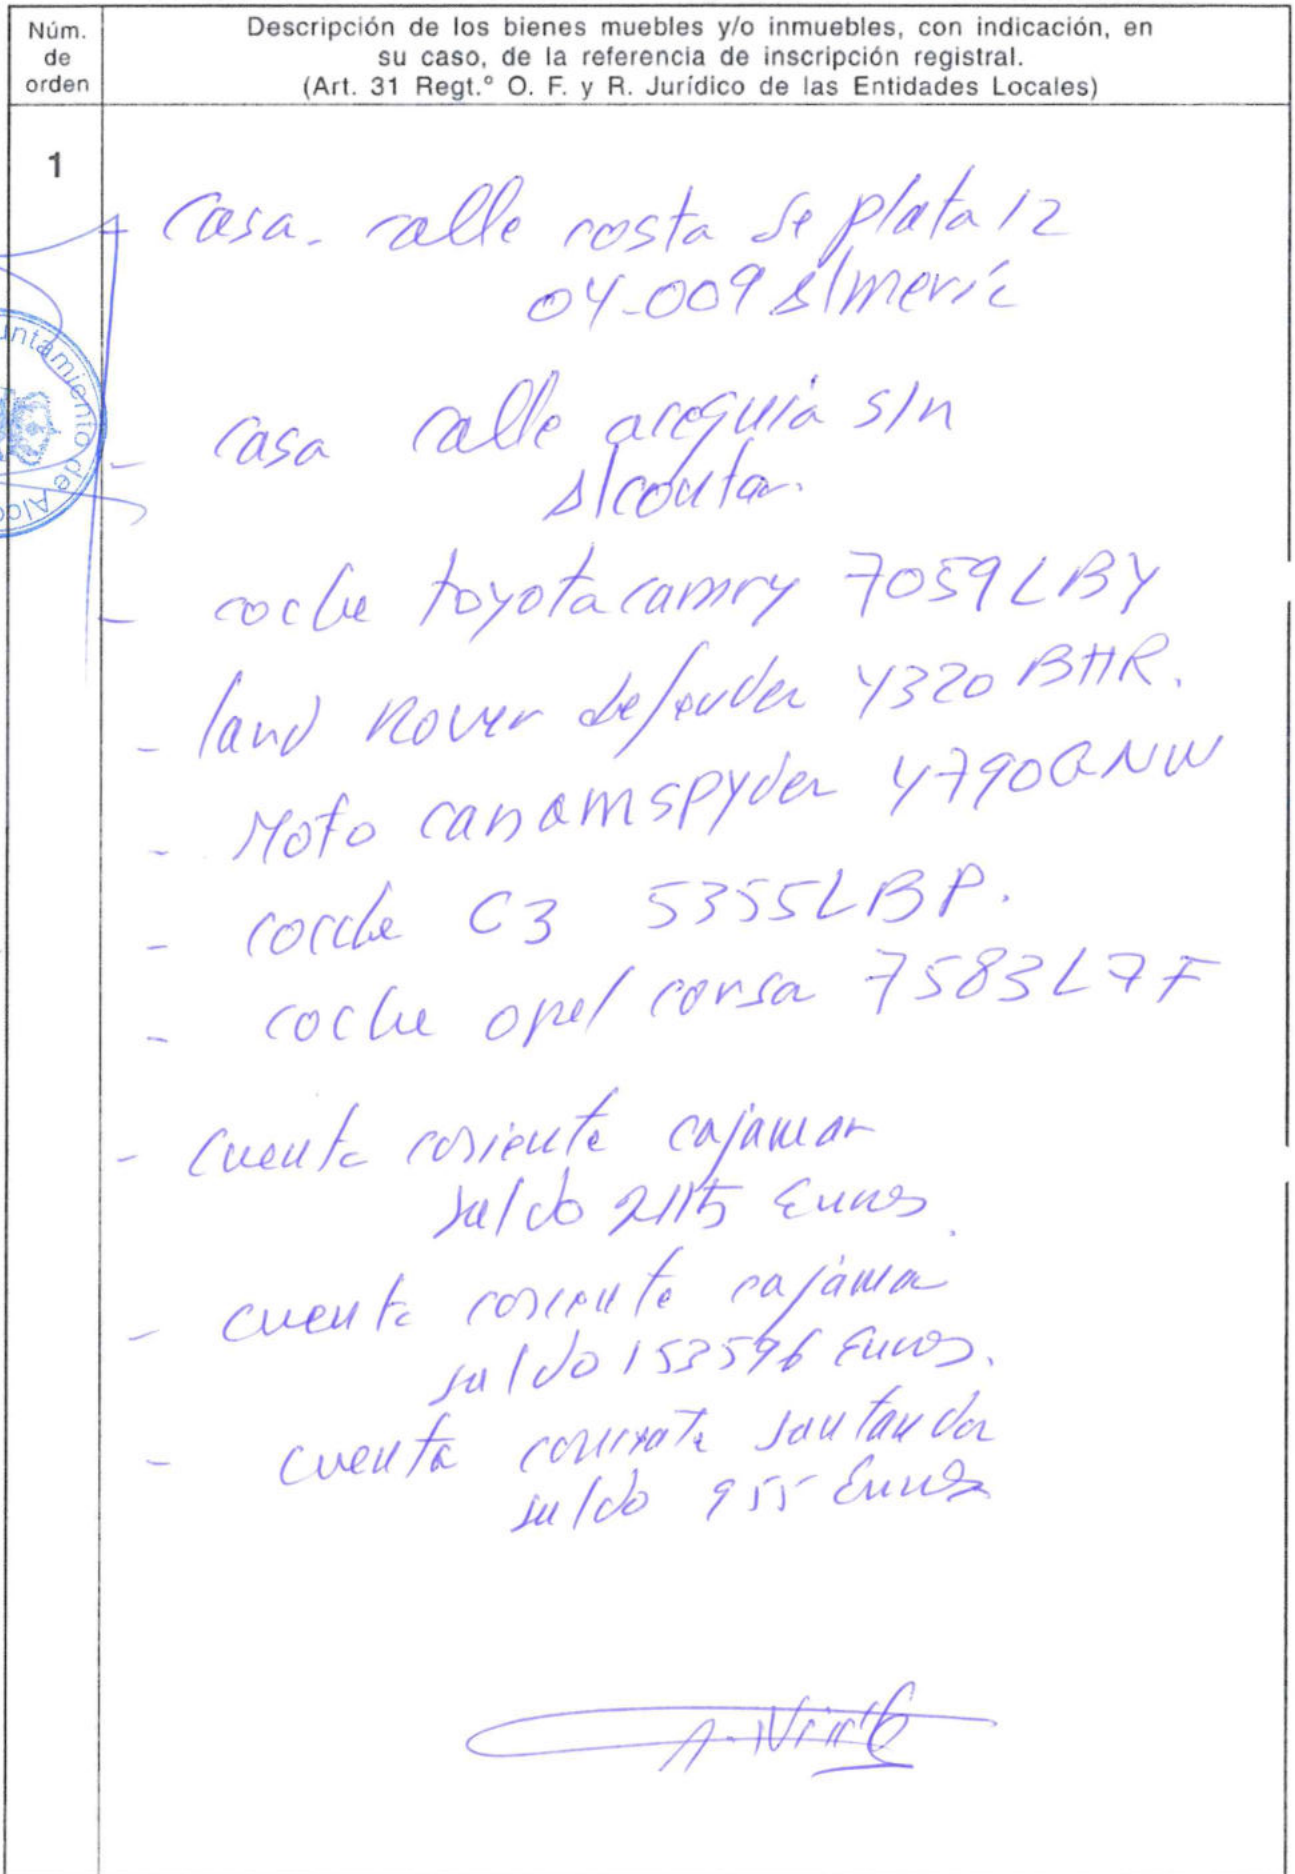 Núm.
de
orden
Descripción de los bienes muebles y/o inmuebles, con indicación, en
su caso, de la referencia de inscripción registral.
(Art. 31 Regt.º O. F. y R. Jurídico de las Entidades Locales)
1
untamiento de Alco
- Casa. calle costa de plata 12
04-009 Almería
- casa calle acequia s/n
Alcontar.
- coche toyota camry 7059 LBY
- land Rover defender 4320 BHR.
- Moto canam spyder 4790 GNW
- cocche C3 5355 LBP.
- coche opel corsa 7583 L
- cuenta coriente cajamar
saldo 2115 Euros.
- cuenta coriente cajamar
saldo 153596 Euros.
- cuenta coriente santander
saldo 955 Euros